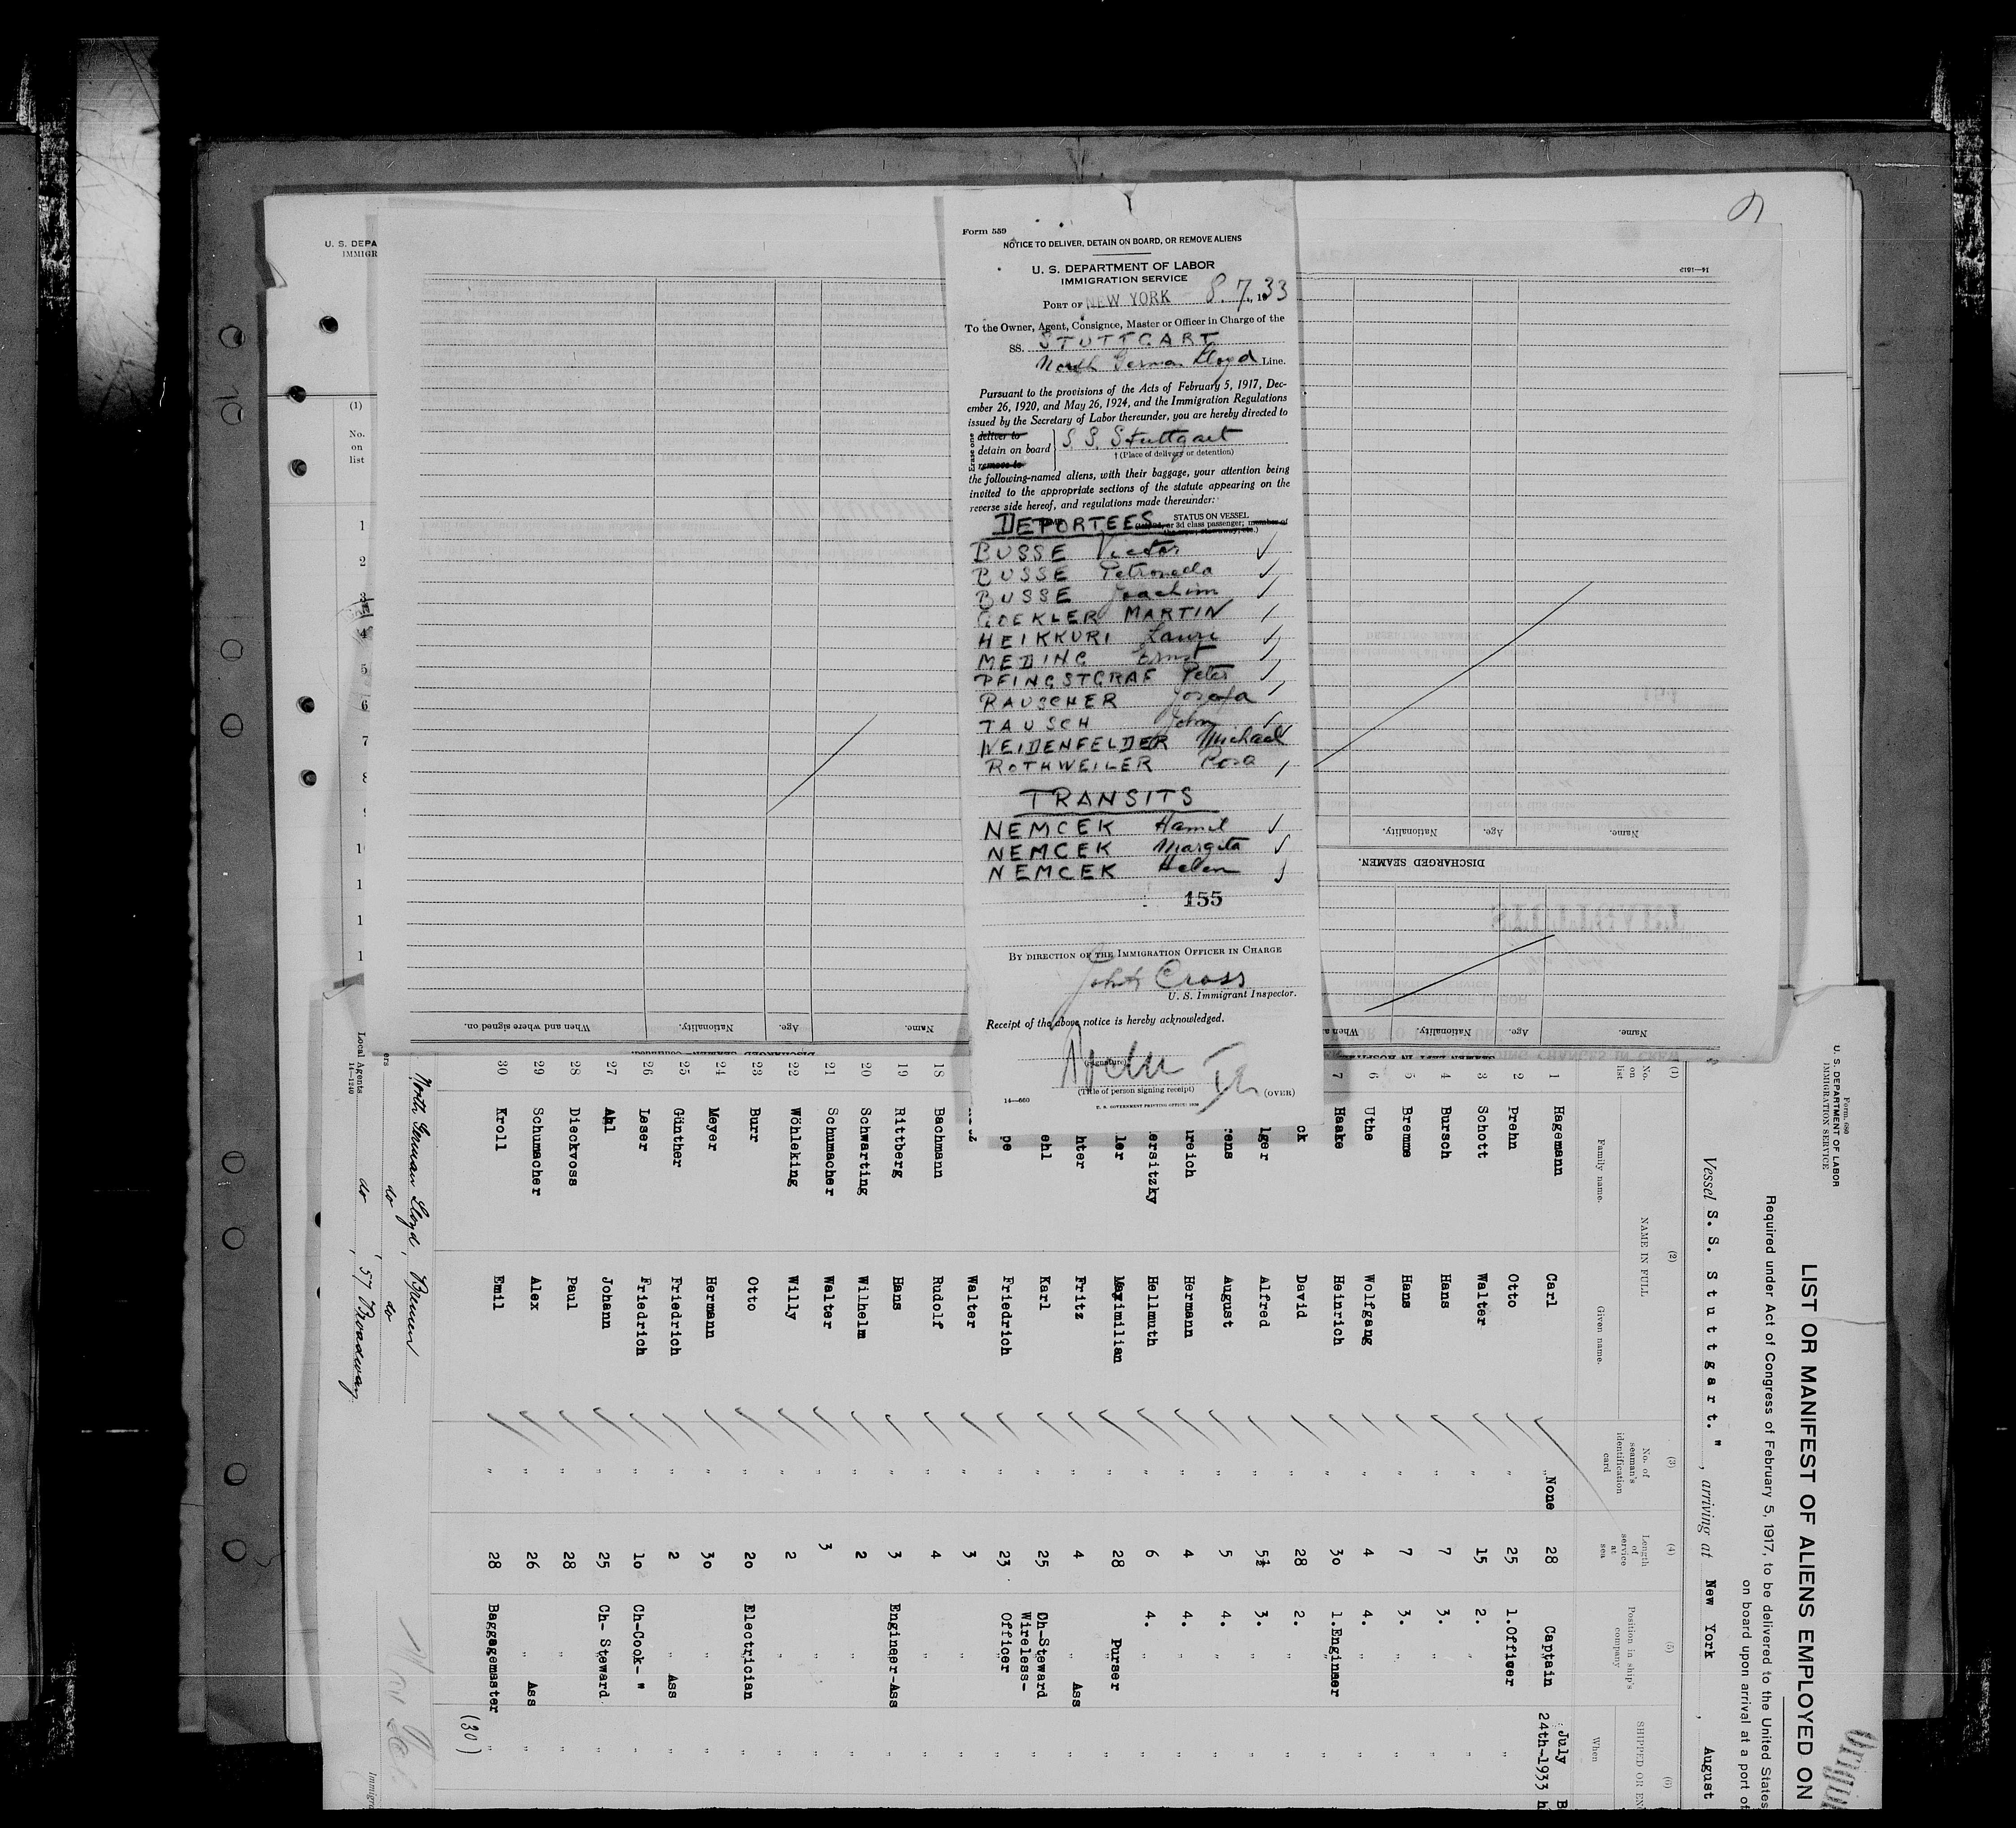 U. S. DEPA
IMMIGR
(1)
No.
on
list
1
2
4
5
6
7
8
9
1
1
1
1
14—1512
Form 559
NOTICE TO DELIVER, DETAIN ON BOARD, OR REMOVE ALIENS
U. S. DEPARTMENT OF LABOR
IMMIGRATION SERVICE
PORT OF NEW YORK 8. 7, 1933
To the Owner, Agent, Consignee, Master or Officer in Charge of the
SS. STUTTGART
North German Lloyd Line.
Pursuant to the provisions of the Acts of February 5, 1917, Dec-
ember 26, 1920, and May 26, 1924, and the Immigration Regulations
issued by the Secretary of Labor thereunder, you are hereby directed to
Erase one
deliver to
detain on board } S. S. Stuttgart
remove to
† (Place of delivery or detention)
the following-named aliens, with their baggage, your attention being
invited to the appropriate sections of the statute appearing on the
reverse side hereof, and regulations made thereunder:
DEPORTEES STATUS ON VESSEL
or 3d class passenger; member of
BUSSE Victor
BUSSE Petroneda
BUSSE Joachim
GOEKLER MARTIN
HEIKKURI Lauri
MEDING Ernst
PFINGSTGRAF Peter
RAUSCHER Josefa
TAUSCH John
WEIDENFELDER Michael
ROTHWEILER Rosa
TRANSITS
NEMCEK Hamil
NEMCEK Margita
NEMCEK Helen
155
BY DIRECTION OF THE IMMIGRATION OFFICER IN CHARGE
John Cross
U. S. Immigrant Inspector.
Receipt of the above notice is hereby acknowledged.
(Signature)
(Title of person signing receipt)
(OVER)
14—660
U. S. GOVERNMENT PRINTING OFFICE
Name. Age. Nationality.
DISCHARGED SEAMEN.
Name. Age. Nationality. When a
Name. Age. Nationality. When and where signed on.
DISCHARGED SEAMEN—Continued.
Form 680
U. S. DEPARTMENT OF LABOR
IMMIGRATION SERVICE
Original
LIST OR MANIFEST OF ALIENS EMPLOYED ON
Required under Act of Congress of February 5, 1917, to be delivered to the United States
on board upon arrival at a port of
Vessel S. S. Stuttgart. " , arriving at New York , August
(1) (2) (3) (4) (5) (6)
No. on list NAME IN FULL No. of seaman's identification card Length of service at sea Position in ship's company SHIPPED OR EN
Family name. Given name. When
1 Hagemann Carl None 28 Captain July 24th-1933
2 Prehn Otto " 25 1.Officer "
3 Schott Walter " 15 2. " "
4 Bursch Hans " 7 3. " "
5 Bremme Hans " 7 3. " "
6 Uthe Wolfgang " 4 4. " "
7 Haake Heinrich " 30 1.Engineer "
ck David " 28 2. " "
lger Alfred " 5½ 3. " "
rens August " 5 4. " "
reich Hermann " 4 4. " "
ersitzky Hellmuth " 6 4. " "
ler Maximilian " 28 Purser "
hter Fritz " 4 " Ass "
ehl Karl " 25 Oh-Steward "
pe Friedrich " 23 Wireless-Officer "
Walter " 3 " "
18 Bachmann Rudolf " 4 " "
19 Rittberg Hans " 3 Engineer-Ass "
20 Schwarting Wilhelm " 2 " "
21 Schumacher Walter " 3 " "
22 Wöhleking Willy " 2 " "
23 Burr Otto " 20 Electrician "
24 Meyer Hermann " 30 " "
25 Günther Friedrich " 2 " Ass "
26 Leser Friedrich " 10 Ch-Cook- " "
27 Ahl Johann " 25 Ch- Steward "
28 Dieckvoss Paul " 28 " "
29 Schumacher Alex " 26 " Ass "
30 Kroll Emil " 28 Baggagemaster "
(30)
North German Lloyd, Bremen
ers do do
Local Agents do , 57 Broadway
14—1240
Immigra